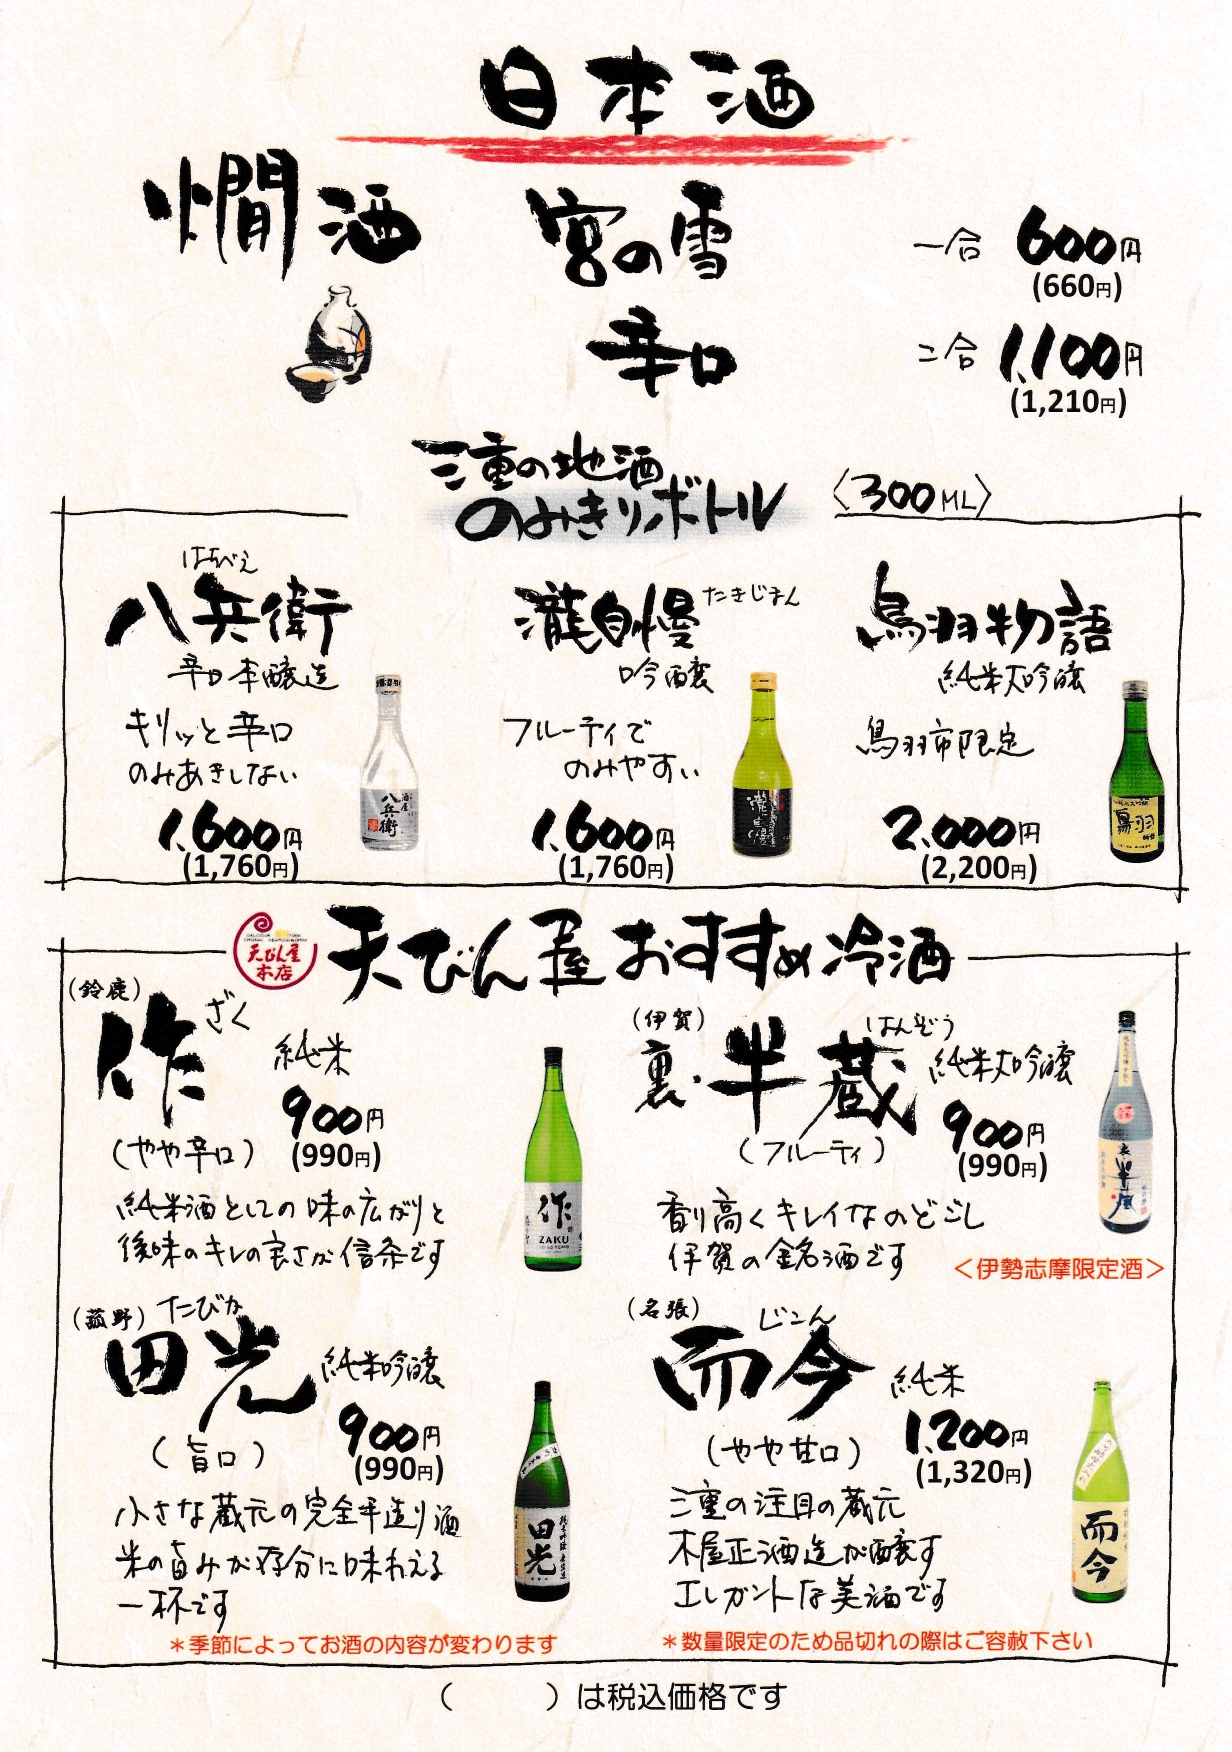 日本酒
燗酒
宮の雪
辛口
一合 600円
(660円)
二合 1,100円
(1,210円)
三重の地酒
のみきりボトル
〈300ML〉
はちべえ
八兵衛
辛口本醸造
キリッと辛口
のみあきしない
1,600円
(1,760円)
酒屋
八兵衛
瀧自慢 たきじまん
吟醸
フルーティで
のみやすい
1,600円
(1,760円)
瀧自慢
鳥羽物語
純米大吟醸
鳥羽市限定
2,000円
(2,200円)
鳥羽
天びん屋
本店
天びん屋おすすめ冷酒
(鈴鹿)
作 ざく
純米
900円
(990円)
(やや辛口)
純米酒としての味の広がりと
後味のキレの良さが信条です
作
ZAKU
(伊賀)
はんぞう
裏・半蔵 純米大吟醸
900円
(990円)
(フルーティ)
香り高くキレイなのどごし
伊賀の銘酒です
＜伊勢志摩限定酒＞
半蔵
(菰野) たびか
田光 純米吟醸
900円
(990円)
(旨口)
小さな蔵元の完全手造り酒
米の旨みが存分に味わえる
一杯です
田光
＊季節によってお酒の内容が変わります
(名張) じこん
而今 純米
1,200円
(1,320円)
(やや甘口)
三重の注目の蔵元
木屋正酒造が醸す
エレガントな美酒です
而今
＊数量限定のため品切れの際はご容赦下さい
(　　　)は税込価格です